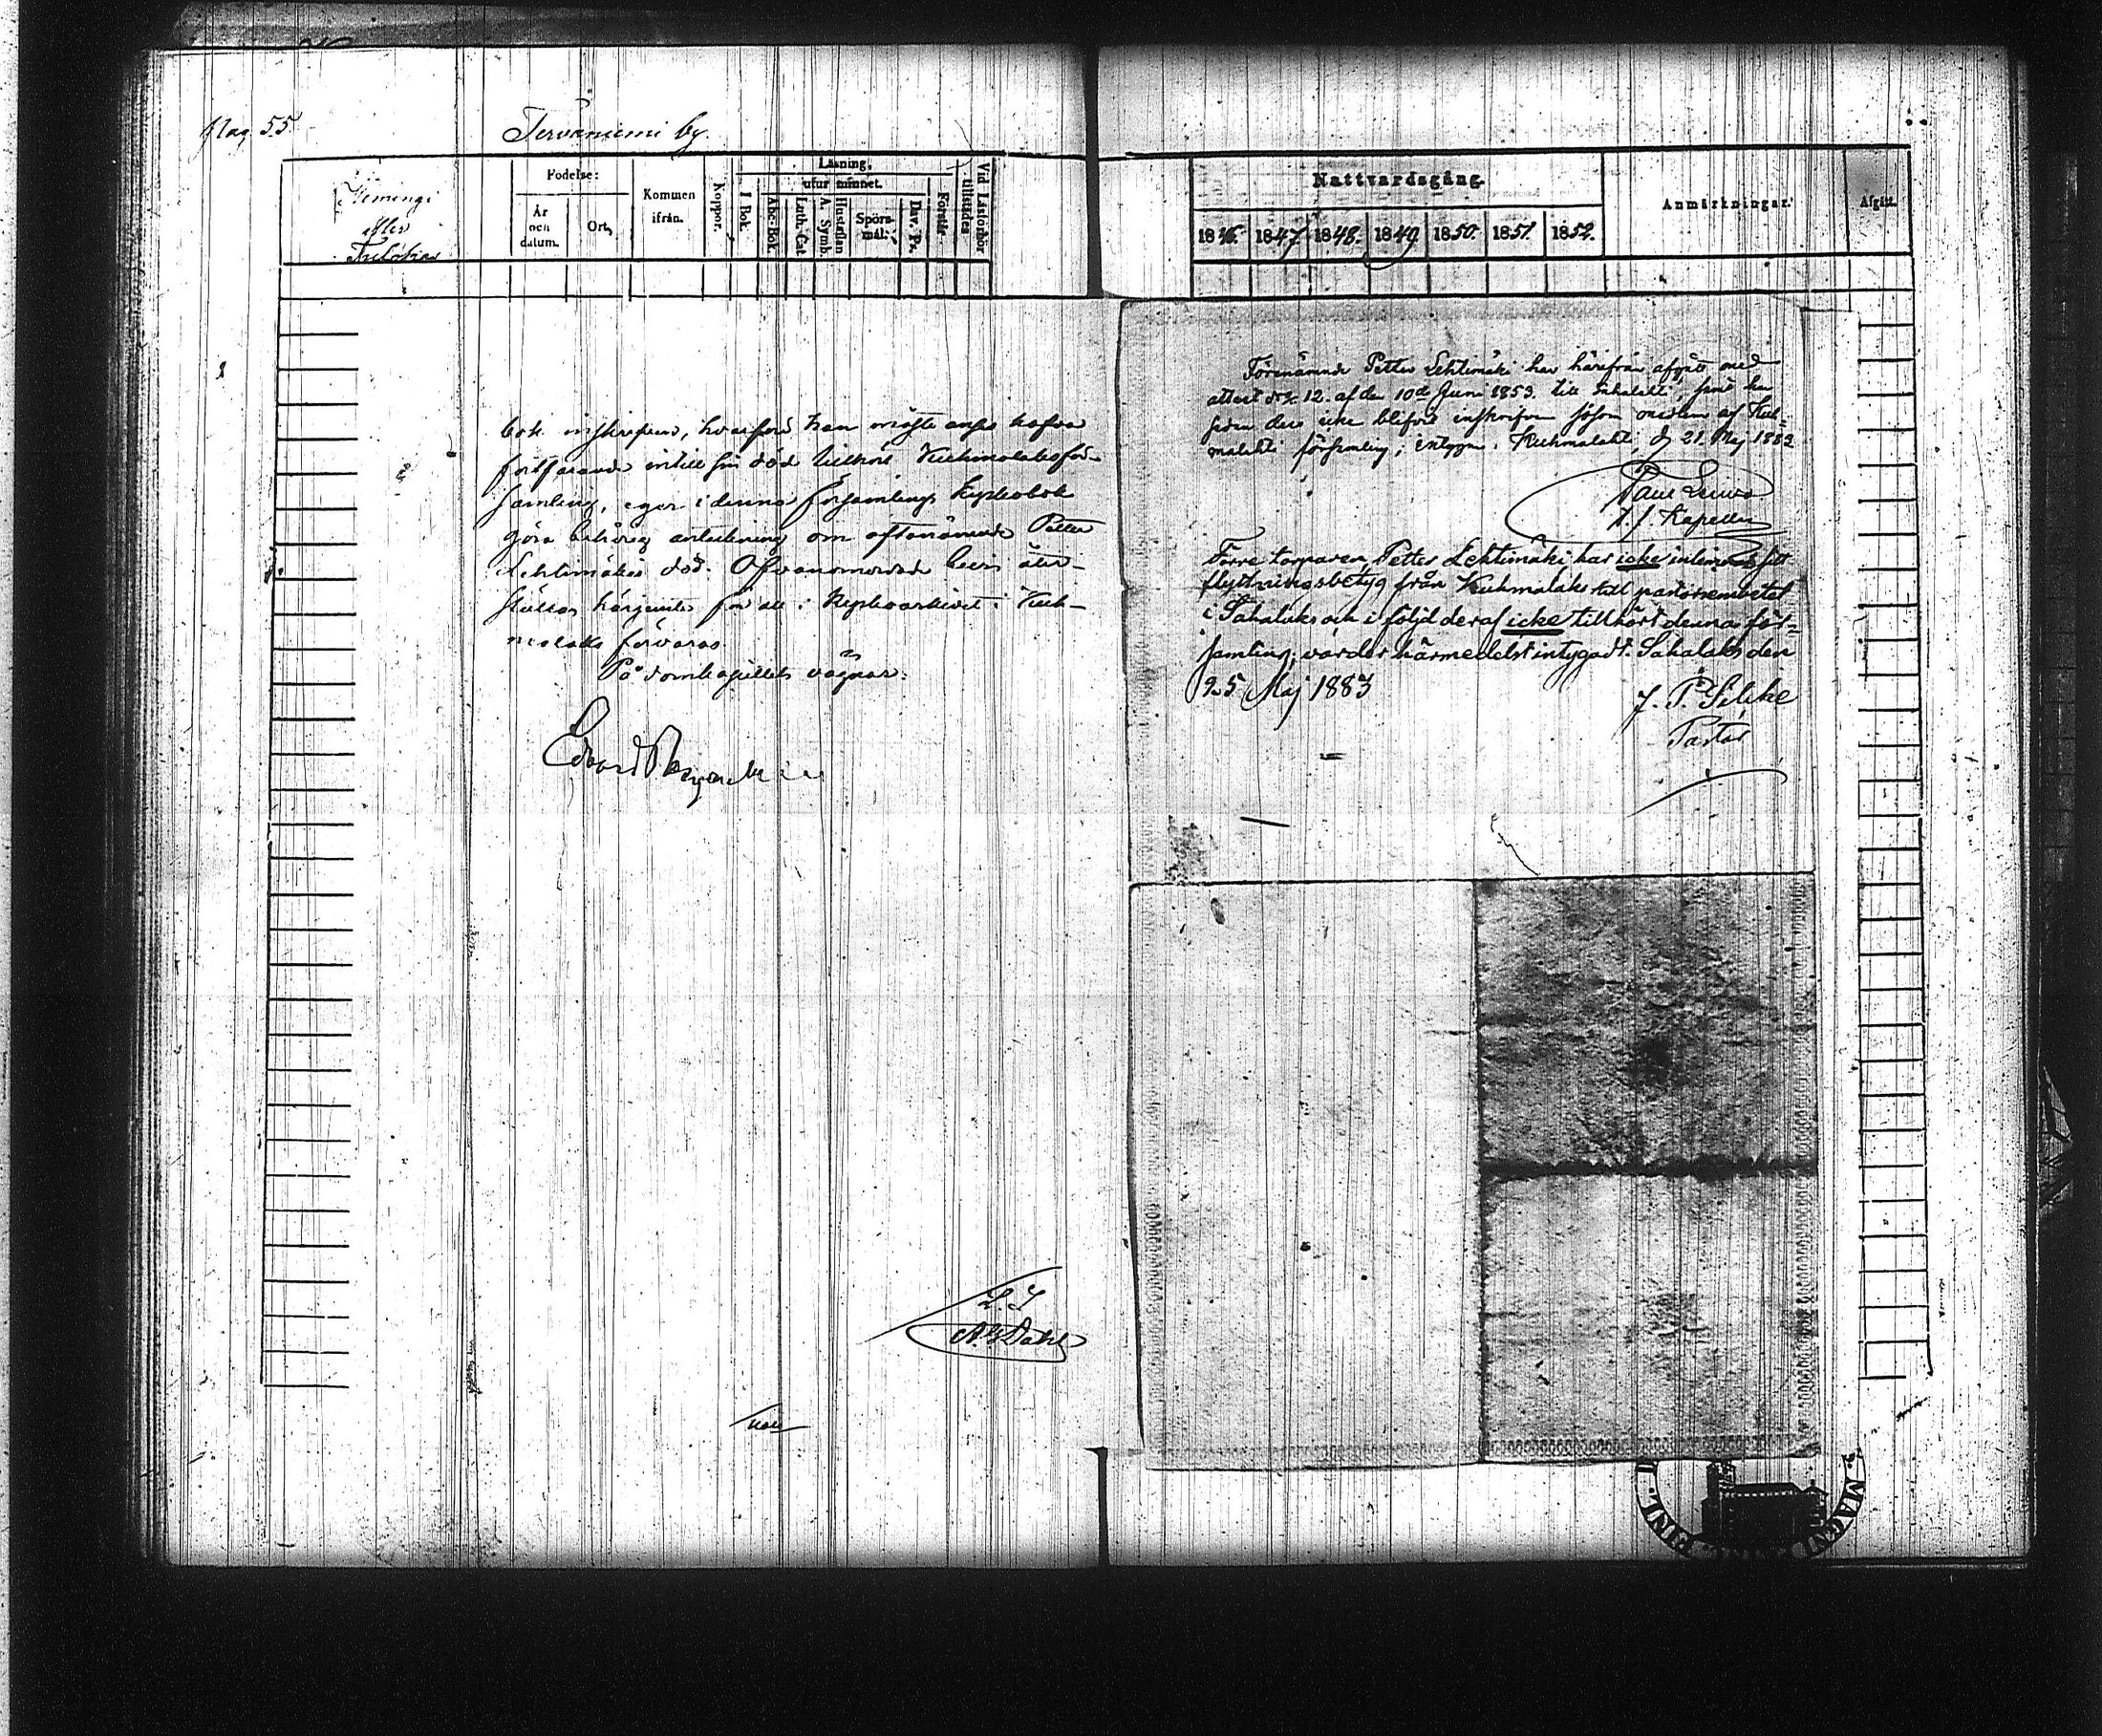 Pag 55
Tervaniemi by.
Hemingi
eller
Födelse:
År och datum.
Ort,
Kommen ifrån.
Koppor.
Läsning,
utur minnet.
I Bok.
Abc-Bok
Luth. Cat.
Hustaflan A. Symb.
Spörs-mål.
Dav. Ps.
Förstår
Vid Läsförhör tillstädes
Nattvardsgång.
1846. 1847. 1848. 1849 1850. 1851. 1852.
Anmärkningar.
Afgått.
bok inskrifven, hvarföre han måste anses hafva
fortfarande intill sin död tillhört Kuhmalaks för-
samling, eger i denna församlings kyrkobok
göra behörig anteckning om oftanämnde Petter
Lehtimäkis död. Ofvanomordade bevis åter-
ställas härjemte för att i kyrkoarkivet i Kuh-
malaks förvaras.
På domkapitlets vägnar:
Edvard
Förenämnde Petter Lehtimäki har härifrån afgått med
attest N:o 12. af den 10de Juni 1853. till Sahalaks,
malahti församling, intygar. Kuhmalahti, d. 21. Maj 1883
V. f. Kapellan
Förre torparen Petter Lehtimäki har icke inlemnat sitt
flyttningsbetyg från Kuhmalaks till pastorsembetet
i Sahalaks och i följd deraf icke tillhört denna för-
samling; varder härmedelst intygadt. Sahalaks den
25 Maj 1883
Pastor